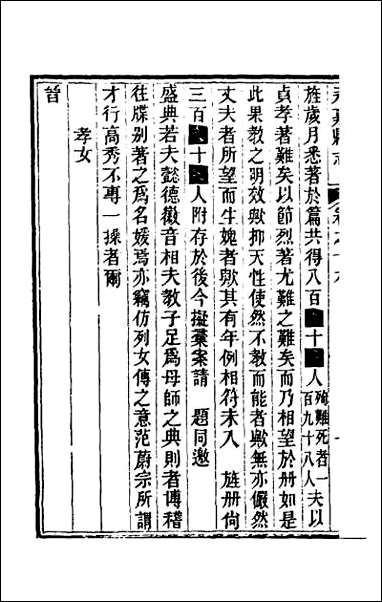 旌歲月悉著於篇共得八百十人殉難死者一百九十八人夫以
貞孝著難矣以節烈著尤難之難矣而乃相望於册如是
此果敎之明效歟抑天性使然不敎而能者歟無亦儼然
丈夫者所望而生媿者歟其有年例相符未入 旌册倘
三百十人附存於後今擬彙案請 題同邀
盛典若夫懿德徽音相夫敎子足爲母師之典則者博稽
往牒别著之爲名媛焉亦竊仿列女傳之意范蔚宗所謂
才行高秀不專一操者爾
孝女
晉